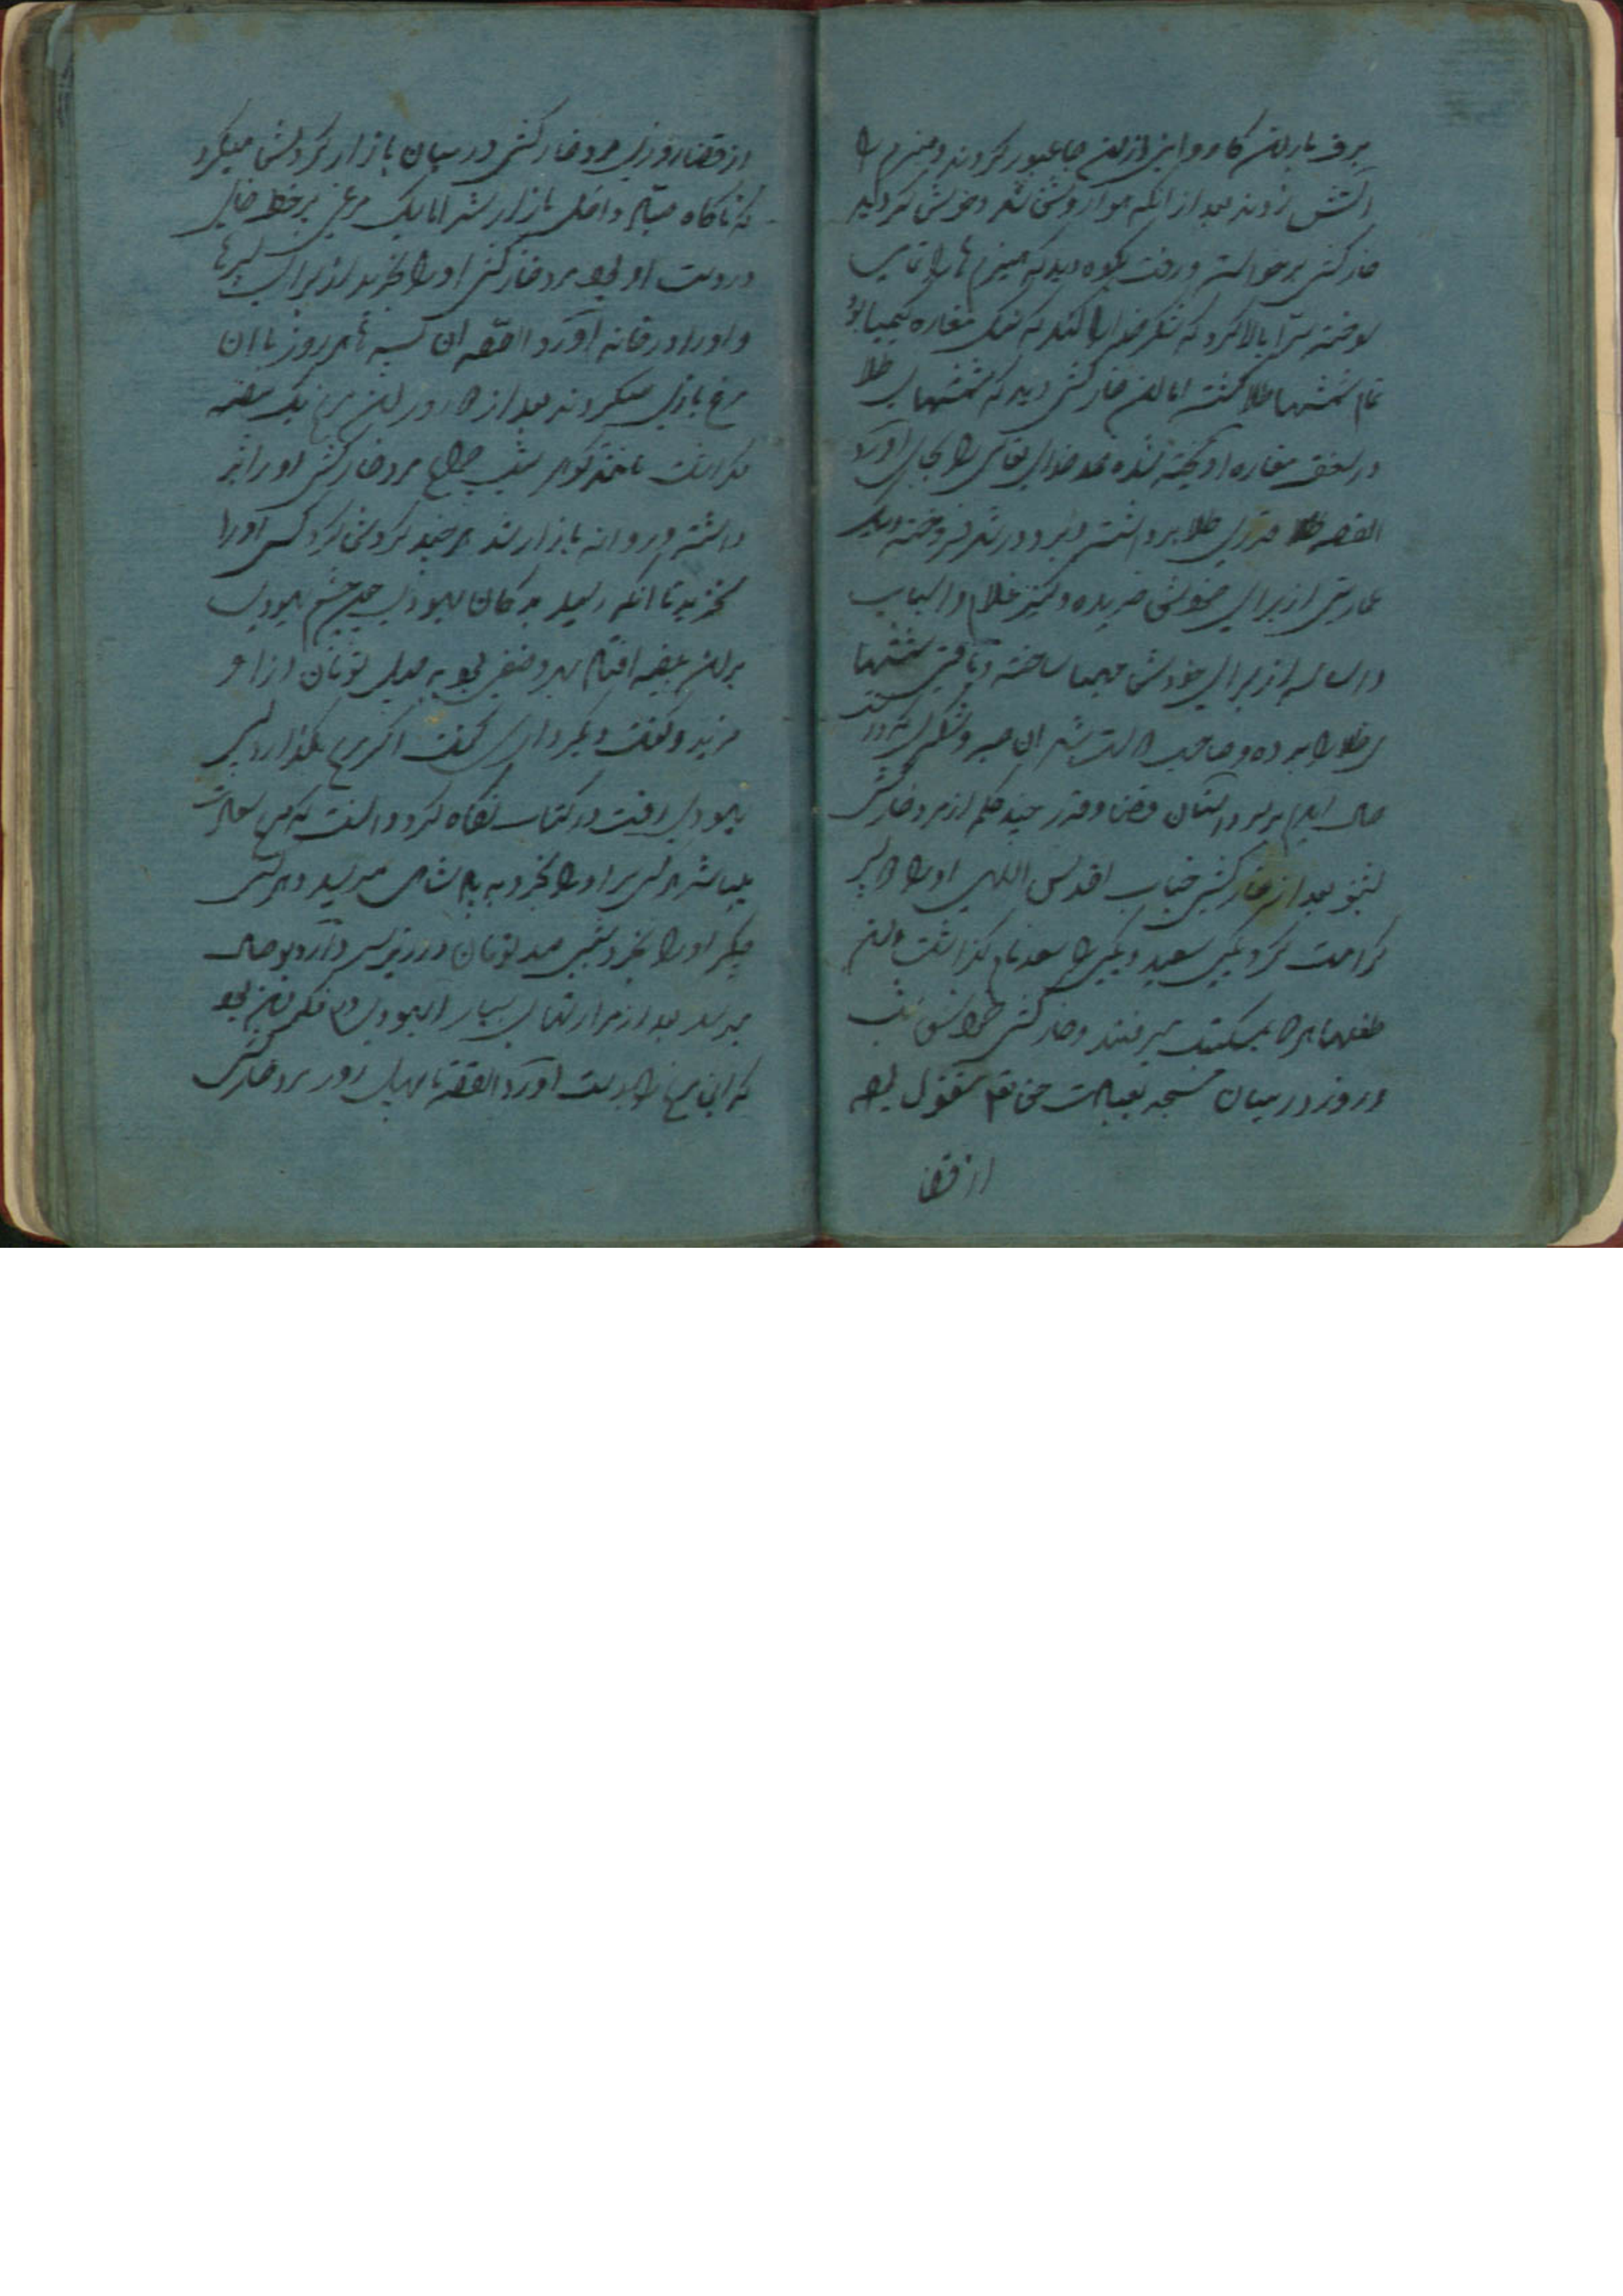 برف باریدن کاروانی از این جا عبور کردند و هیزم را
آتش زدند بعد از انکه هوا روشن شد و خوش گردید
خارکش برخواست و رفت بکوه دید که هیزم ها را تمامی
سوخته سر بالا کرد که شکر خدا کند که سنگ مغاره کیمیا بود
تمام شمشهای طلا گشته اما این خارکش دید که شمشهای طلا
در سقف مغاره اویخته شده حمد خدای تعالی را بجای آورد
القصه قدری طلا برداشته و برد در شهر فروخته و یک
عمارتی از برای خویش خریده و کنیز غلام و اسباب
و اساسه از برای خودش مهیا ساخته و باقی شمشها
ی طلا را برده و صاحب دولت شد ان صبر و شکر
حال امدیم بر سر داستان قضا و قدر چند کلمه از مرد خارکش
بشنو بعد از خارکش جناب اقدس الهی او را دو پسر
کرامت کرد یکی سعید و یکی را سعد نام گذاشت و این
طفلها هر دو بمکتب میرفتند و خارکش شب
و روز در میان مسجد بعبادت حق تعالی مشغول بود
از قضا
از قضا روزی مرد خارکش در میان بازار گردش میکرد
که ناگاه صیادی داخل بازار شد اما یک مرغی پر خط خالی
در دست او بود مرد خارکش او را خرید از برای پسرها
و او را در خانه آورد القصه ان پسرها هر روز با ان
مرغ بازی میکردند بعد از دو روز این مرغ یک بیضه
گذاشت مانند گوهر شب چراغ مرد خارکش او را بر
داشته و روانه بازار شد هر چند گردش کرد کسی او را
نخرید تا انکه رسید بدکان یهودی چون چشم یهودی
بر این بیضه افتاد به صد تومان از او
خرید و گفت دیگر داری گفت اگر مرغ بگذارد پس
یهودی رفت در کتاب نگاه کرد دانست که مرغ سعادت
میباشد هر کس سر او را بخورد به پادشاهی میرسد و هر کس
جگر او را بخورد شبی صد تومان در زیر سر دارد
میرسد بعد از مرارتهای بسیار یهودی در فکر این بود
که این مرغ را بدست آورد القصه تا چهل روز مرد خارکش